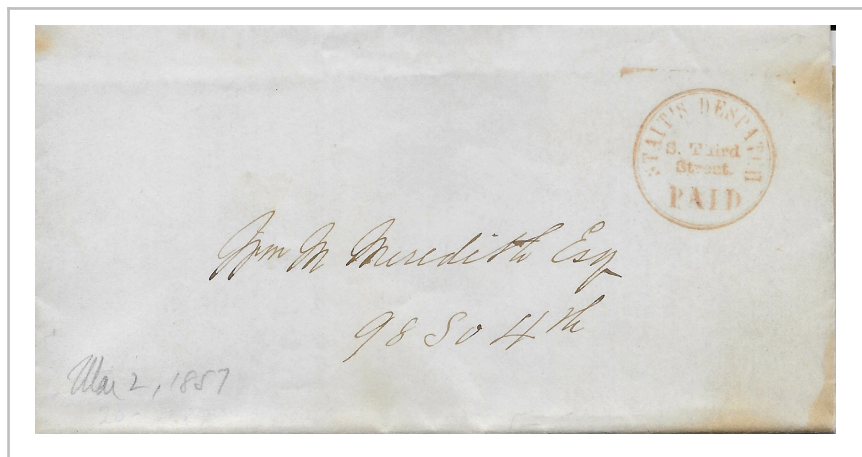 STAIT'S DESPATCH
S. Third
Street.
PAID
Wm M Meredith Esq
98 So 4th
Mar 2, 1857